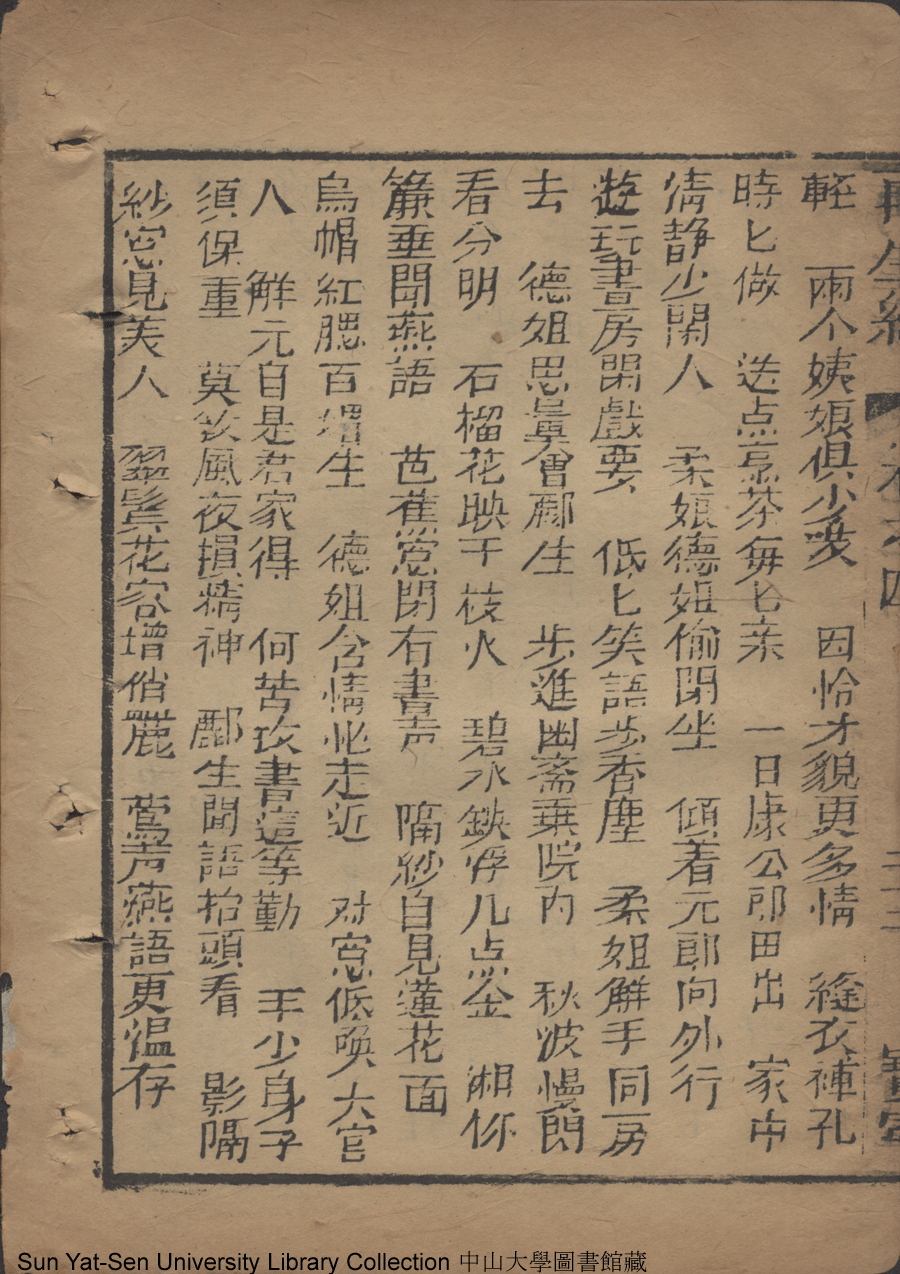 再生緣 卷之四 二十三 寶寧
輊 兩个姨娘俱少愛 因怜才貌更多情 縫衣褲孔
時匕做 送点烹茶每匕亲 一日康公郎田出 家中
清静少閑人 柔娘德姐偷閉坐 傾着元郎向外行
遊玩書房閑戲耍 低匕笑語步香塵 柔姐解手同一房
去 德姐思量會郦生 步進幽斋乗院内 秋波慢閃
看分明 石榴花映干枝火 碧水鉄俘几点金 湘你
簾垂聞燕語 芭蕉窓閉有書声 隔紗自見蓮花面
烏帽紅腮百媚生 德姐含情忙走近 对窓低喚大官
人 觧元自是君家得 何苦攻書這等勤 年少身子
須保重 莫教風夜損精神 郦生聞語抬頭看 影隔
紗窓見美人 翠鬂花容増俏麗 鶯声燕語更温存
Sun Yat-Sen University Library Collection 中山大學圖書館藏